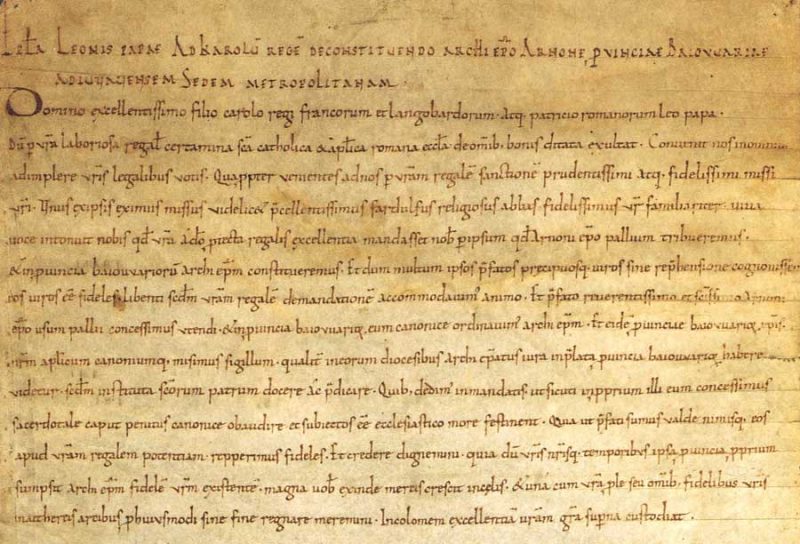 Epła Leonis papae Ad Karolū regē deconstituendo archiepō Arnone, pvinciae Baiouuariae
adiuuauensem Sedem metropolitanam.
Domino excellentissimo filio carolo regi francorum et langobardorum. Atq; patricio romanorum leo papa.
Dū p vrā laboriosa regal certamina scā catholica & aplica romana eccla de omib; bonis ditata exultat. Conuenit nos in omnib;
adimplere vris legalibus votis. Quappter venientes ad nos p vram regalē sanctionē prudentissimi atq; fidelissimi missi
vri. Unus ex ipsis eximius missus videlic& pcellentissimus fardulfus religiosus abbas. fidelissimus vr familiariter. viua
uoce intonuit nobis qd vra a dō ptecta regalis excellentia mandasset nob p ipsum qd Arnoni epo pallium tribueremus.
& in puincia baiouuariorū Archi epm constitueremus. Et dum multum ipsos pfatos precipuosq; viros sine rephensione cognouissem
eos viros eē fideles. libenti scdm vram regalē demandationē accommodauim' animo. Et pfato reuerentissimo et Arnoni
epo usum pallii concessimus utendi. & in puincia baiouuariorū eum canonice ordinauim' archi epm. Et eidē puinciae baiouuarioꝝ
nrm aplicum canonicumq; misimus sigillum. qualit in eorum diocesibus Archi epatus iura in plata puincia baiouuarioꝝ habere
videtur. scdm instituta scorum patrum docere ac pdicare. Quib; dedim' in mandatis ut sicuti in pprium illi eum concessimus
sacerdotale caput penitus canonice obaudire et subiectos eē ecclesiastico more festinent. Quia ut pfati sumus valde nimisq; eos
apud vram regalem potentiam. repperimus fideles. Et credere dignemini. quia dū vris nrisq; temporibus ipsa puincia pprium
sumpsit archi epm fidelē vrm existentē. magna uob exinde merces crescit in celis. & una cum vra ple seu omib; fidelibus vris
in aethereis arcibus p huiusmodi sine fine regnare meremini. Incolomem excellentiā vram grā supna custodiat.